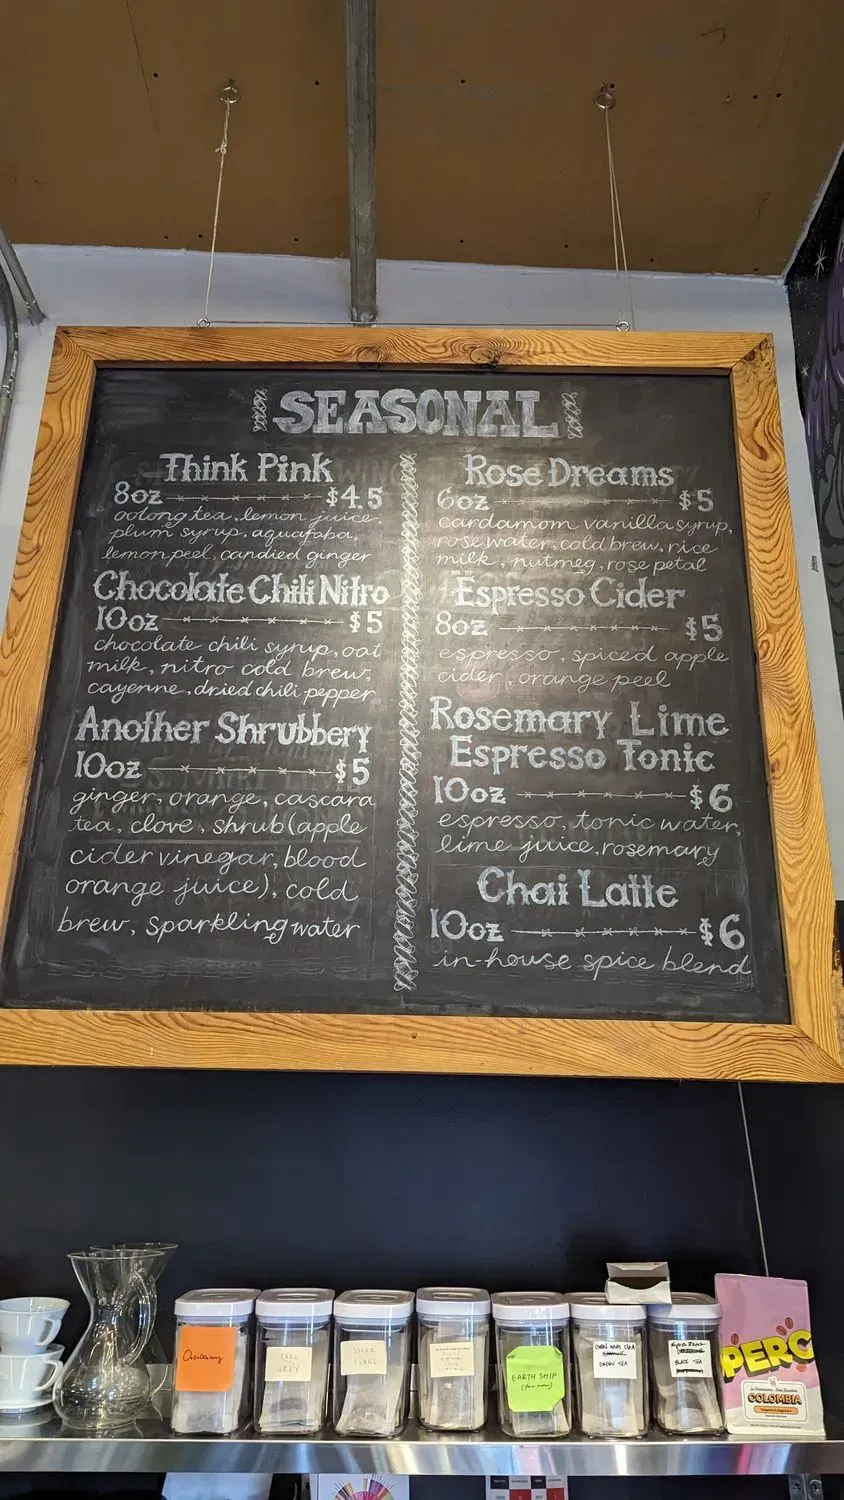 SEASONAL
Think Pink
8oz $4.5
oolong tea, lemon juice,
plum syrup, aquafaba,
lemon peel, candied ginger
Chocolate Chili Nitro
10oz $5
chocolate chili syrup, oat
milk, nitro cold brew,
cayenne, dried chili pepper
Another Shrubbery
10oz $5
ginger, orange, cascara
tea, clove, shrub (apple
cider vinegar, blood
orange juice), cold
brew, sparkling water
Rose Dreams
6oz $5
cardamom vanilla syrup,
rose water, cold brew, rice
milk, nutmeg, rose petal
Espresso Cider
8oz $5
espresso, spiced apple
cider, orange peel
Rosemary Lime
Espresso Tonic
10oz $6
espresso, tonic water,
lime juice, rosemary
Chai Latte
10oz $6
in-house spice blend
EARL
GREY
EARTH SHIP
GREEN TEA
BLACK TEA
PERC
COLOMBIA